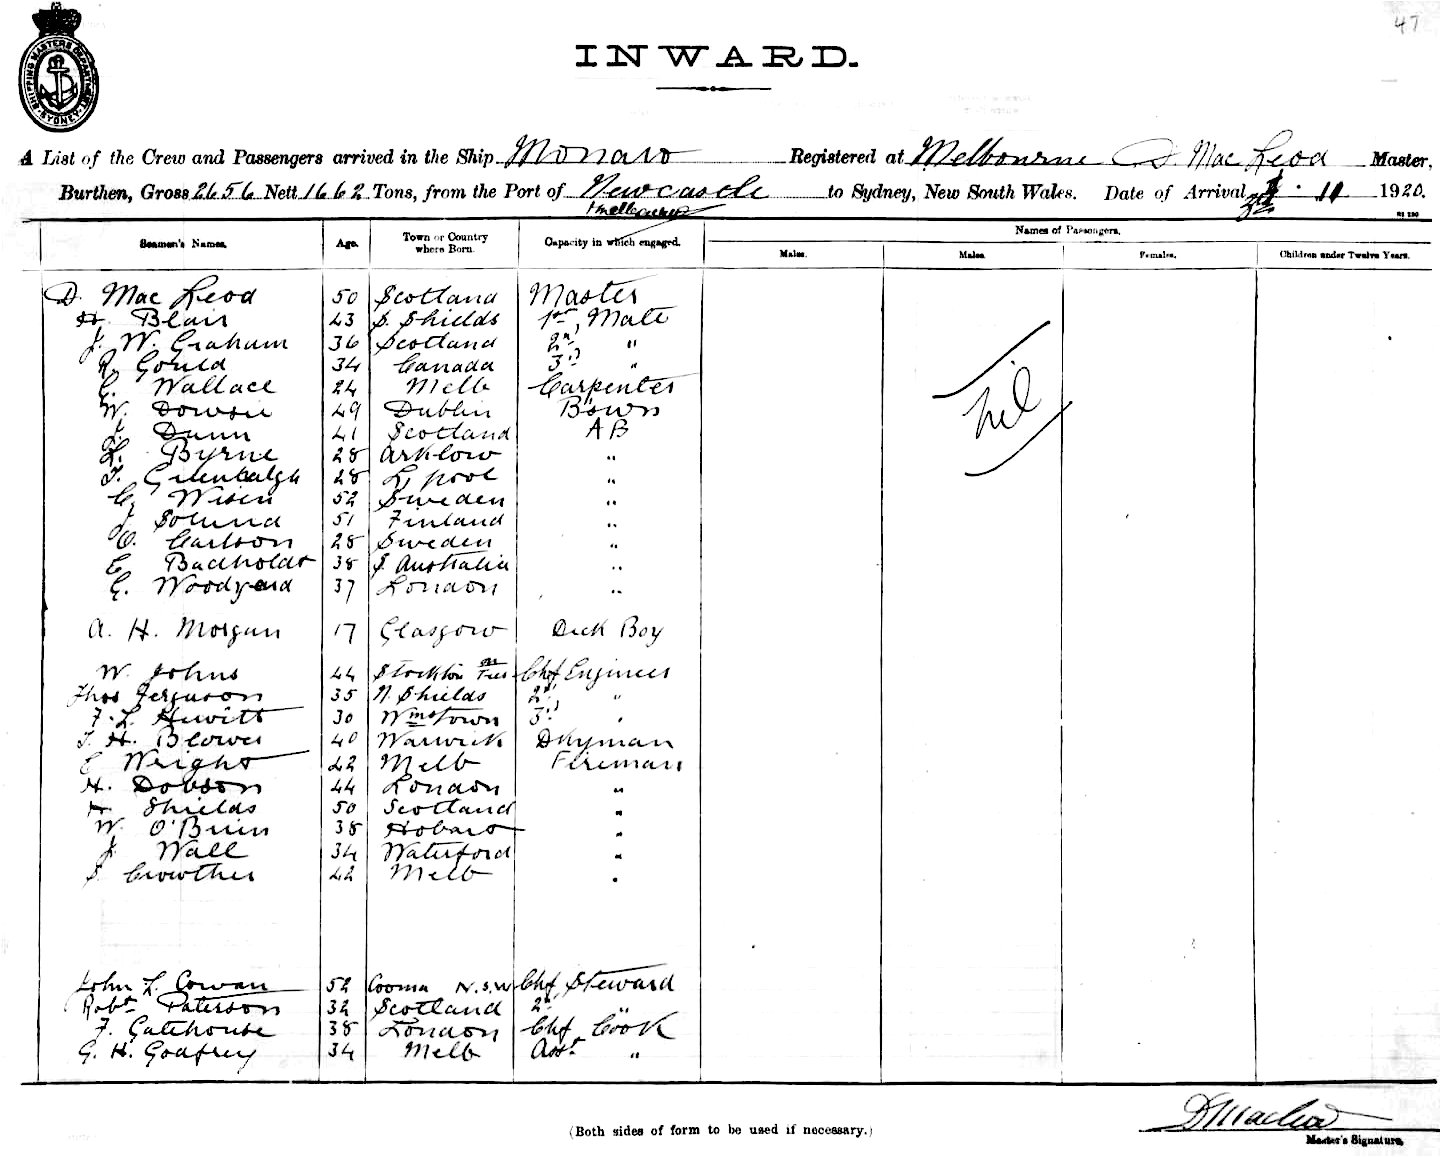 47
SHIPPING MASTERS DEPARTMENT SYDNEY
INWARD.
A List of the Crew and Passengers arrived in the Ship Monaro Registered at Melbourne D Mac Leod Master,
Burthen, Gross 2656 Nett 1662 Tons, from the Port of Newcastle to Sydney, New South Wales. Date of Arrival 11 1920.
Seamen's Names. Age. Town or Country where Born. Capacity in which engaged. Names of Passengers.
Males. Males. Females. Children under Twelve Years.
D. Mac Leod 50 Scotland Master
H. Blair 43 S. Shields 1st Mate
J. W. Graham 36 Scotland 2nd "
R. Gould 34 Canada 3rd "
G. Wallace 24 Melb Carpenter
W. Dowsie 49 Dublin Bo'swn
J. Dunn 41 Scotland AB
L. Byrne 28 Arklow "
T. Greenhalgh 28 L'pool "
C. Wisen 52 Sweden "
J. Solund 51 Finland "
O. Carlson 28 Sweden "
E. Buchholdt 38 S. Australia "
G. Woodyard 37 London "
nil
A. H. Morgan 17 Glasgow Deck Boy
W. Johns 44 Stockton on Tees Chf Engineer
Thos Ferguson 35 N. Shields 2nd "
F. L. Hewitt 30 Wmstown 3rd "
T. H. Blower 40 Warwick Dkyman
E Wright 42 Melb Fireman
H. Dobson 44 London "
H Shields 50 Scotland "
W. O'Brien 38 Hobart "
J. Wall 34 Waterford "
S. Crowther 42 Melb "
John L. Cowan 52 Cooma N.S.W Chf Steward
Robt Paterson 32 Scotland 2nd "
F. Gatehouse 38 London Chf Cook
G. H. Godfrey 34 Melb Asst "
D MacLeod
(Both sides of form to be used if necessary.)
Master's Signature.